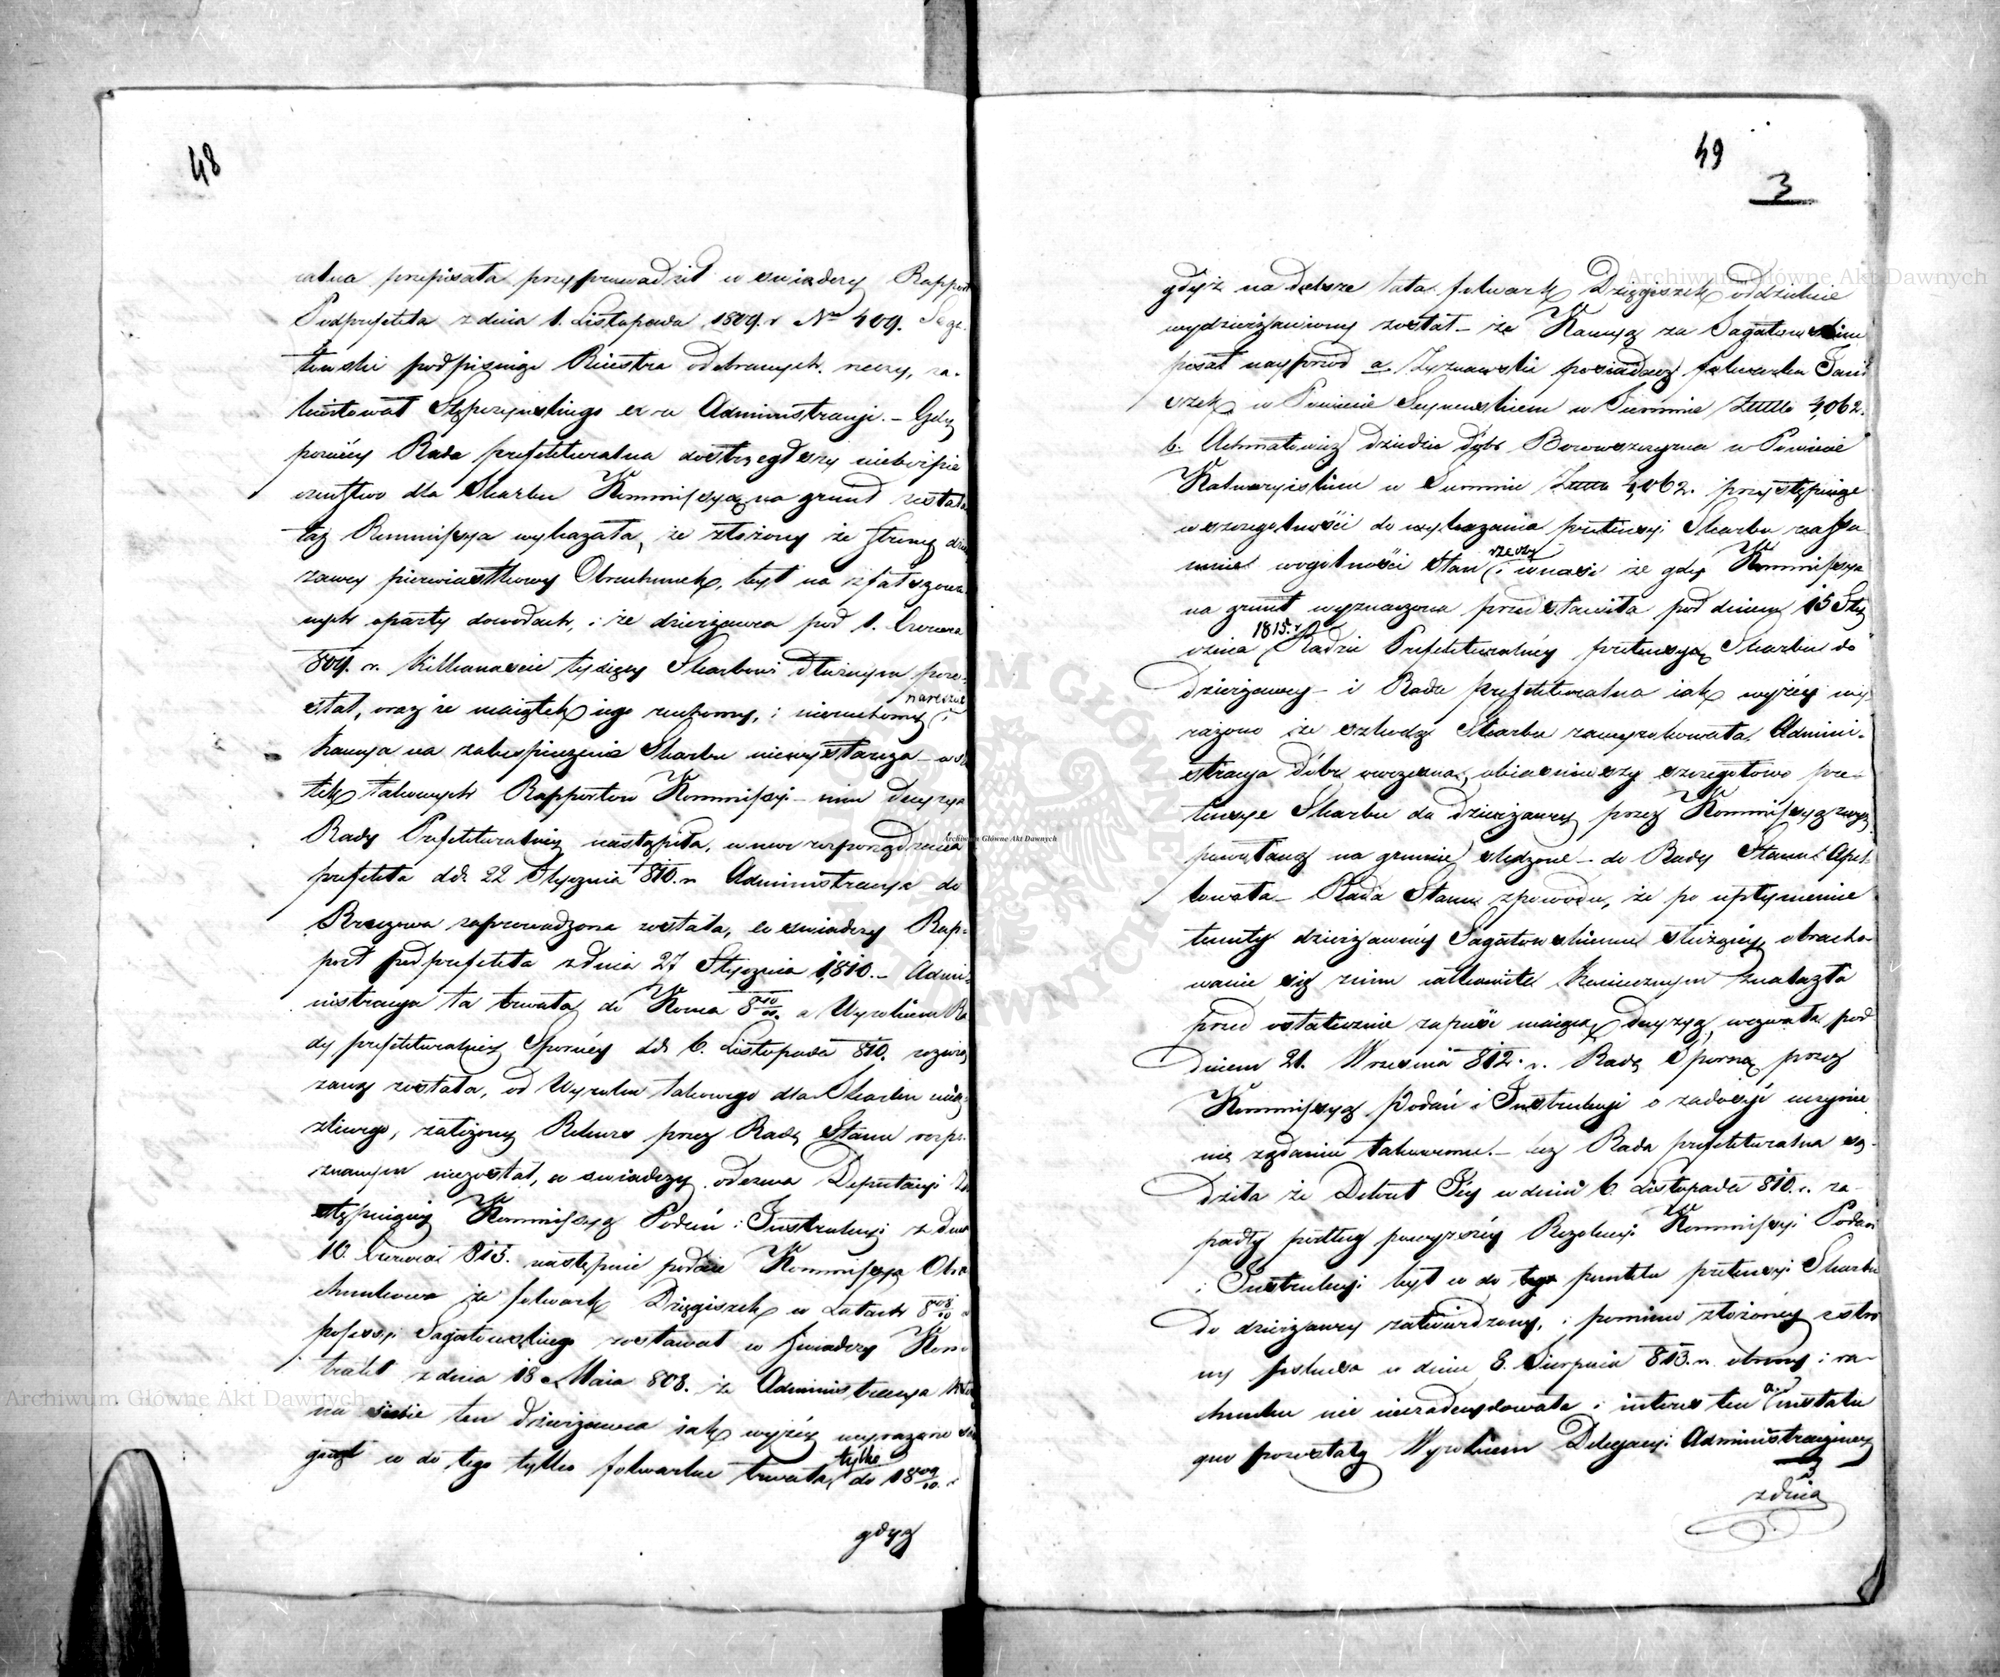 48
ralna przepisała przyprowadził w swiadczy Rapport
Podprefekta z dnia 1. Listopada 1809. r No 409.
towski podpisując Riestra odebranych rzeczy, za-
kwitował Stępczyńskiego ex ra Administracji. – Gdy
poniżey Rada prefekturalna dostrzegłszy niebeśpie
czeństwo dla Skarbu Kommissyą na grunt zesłała
taż Kommissya wykazała, że złożony ze strony dzier
żawcy pierwiastkowy Obrachunek, był na zfałszowa
nych oparty dowodach, i że dzierżawca pod 1. Czerwca
809. r. kilkanaście tysięcy Skarbowi dłużnym pozo-
stał, oraz że maiątek iego ruchomy, i nieruchomy i
nareszcie
kaucya na zabespieczenie Skarbu niewystarcza – w sku
tek takowych Rapportow Kommissyi – nim decyzya
Rady Prefekturalney nastąpiła, w moc rozporządzenia
prefekta dd. 22 Stycznia 810. r. Administracya do
Krasowa zaprowadzona została, co swiadczy Rap-
port podprefekta z dnia 27 Stycznia 1,810. – Admi-
nistracya ta trwała do Konca 8 09/10. a Wyrokiem Ra
dy prefekturalney Sporney dd. 6. Listopada 810. rozwią
zaną została, od Wyroku takowego dla Skarbu uciąż
żliwego, założony Rekurs przez Radę Stanu rozpo
znanym niezostał, co swiadczy odezwa Deputacyi Za
stępuiącey Kommissyą Podań i Instrukcyi z dnia
10. Czerwca 815. następnie podaie Kommissya Obra
chunkowa że folwark Dzięgiszek w Latach 8 08/10 w
possessyi Sagatowskiego zostawał co swiadczy Kon-
trakt z dnia 18 Maia 808. że Administracya
na siebie ten dzierżawca iak wyżey wyrażono
gnął co do tego tylko folwarku trwała do 18 09/10. :
tylko
gdyż
49
3
gdyż na dalsze lata folwark Dzięgiszek oddzielnie
wydzierżawiony został – że Kaucyą za Sagatowskim
pisał nayprzód a. Zyznowski posiadacz folwarku Tani
szek w Powiecie Seyneńskiem w Summie 4,062.
b. Achmatowicz dziedzic dóbr Borowszczyzna w Powiecie
Kalwaryiskim w Summie 4,062. przystępuiąc
w szczegulności do wykazania pretensyi Skarbu zassu
mmie wogolności stan i wnosi że gdy Kommissya
rzeczy
na grunt wyznaczona przedstawiła pod dniem 15 Sty
cznia Radzie Prefekturalney pretensyą Skarbu do
1815. r
Dzierżawcy – i Rada prefekturalna iak wyżey wy
rażono ze szkodą Skarbu zawyrokowała. Admini-
stracya dóbr owczesna, obiasniwszy szczegułowo pre-
tensye Skarbu do Dzierżawcy przez Kommissyą
powołaną na gruncie śledzone – do Rady Stanu Apel-
lowała – Rada Stanu z powodu, że po upłynnienie
tenuty dzierżawney Sagatowskiemu służącey obracho-
wanie się z nim całkowite koniecznym znalazła
przed ostatecznie zapaść maiącą decyzyą, wezwała pod
Dniem 21. Września 812. r. Radę Sporną przez
Kommissyą Podań i Instrukcyi o zadosyć uczynie
nie żądaniu takowemu. – lecz Rada prefekturalna są-
dziła że Dekret Iey w dniu 6. Listopada 810. r. za-
padły podług powyższey Rezolucyi Kommissyi Podań
i Instrukcyi był co do punktu pretensyi Skarbu
do dzierżawcy zatwierdzony, i pomimo złożoney z stro
ny fiskusa w dniu 3. Sierpnia 813. r. obrony i ra-
chunku nic niezadecydowała i interes ten in statu
quo pozostały Wyrokiem Delegacyi Administracyiney
z dnia